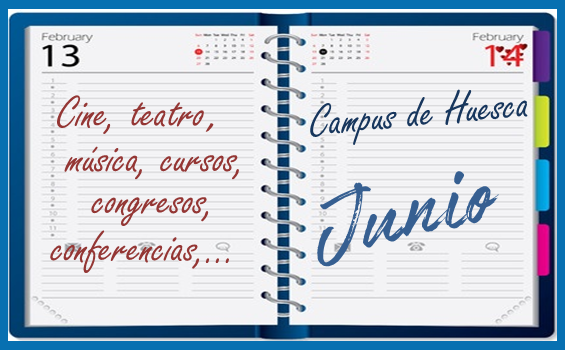 February
13
Cine, teatro,
música, cursos,
congresos,
conferencias,...
February
14
Campus de Huesca
Junio